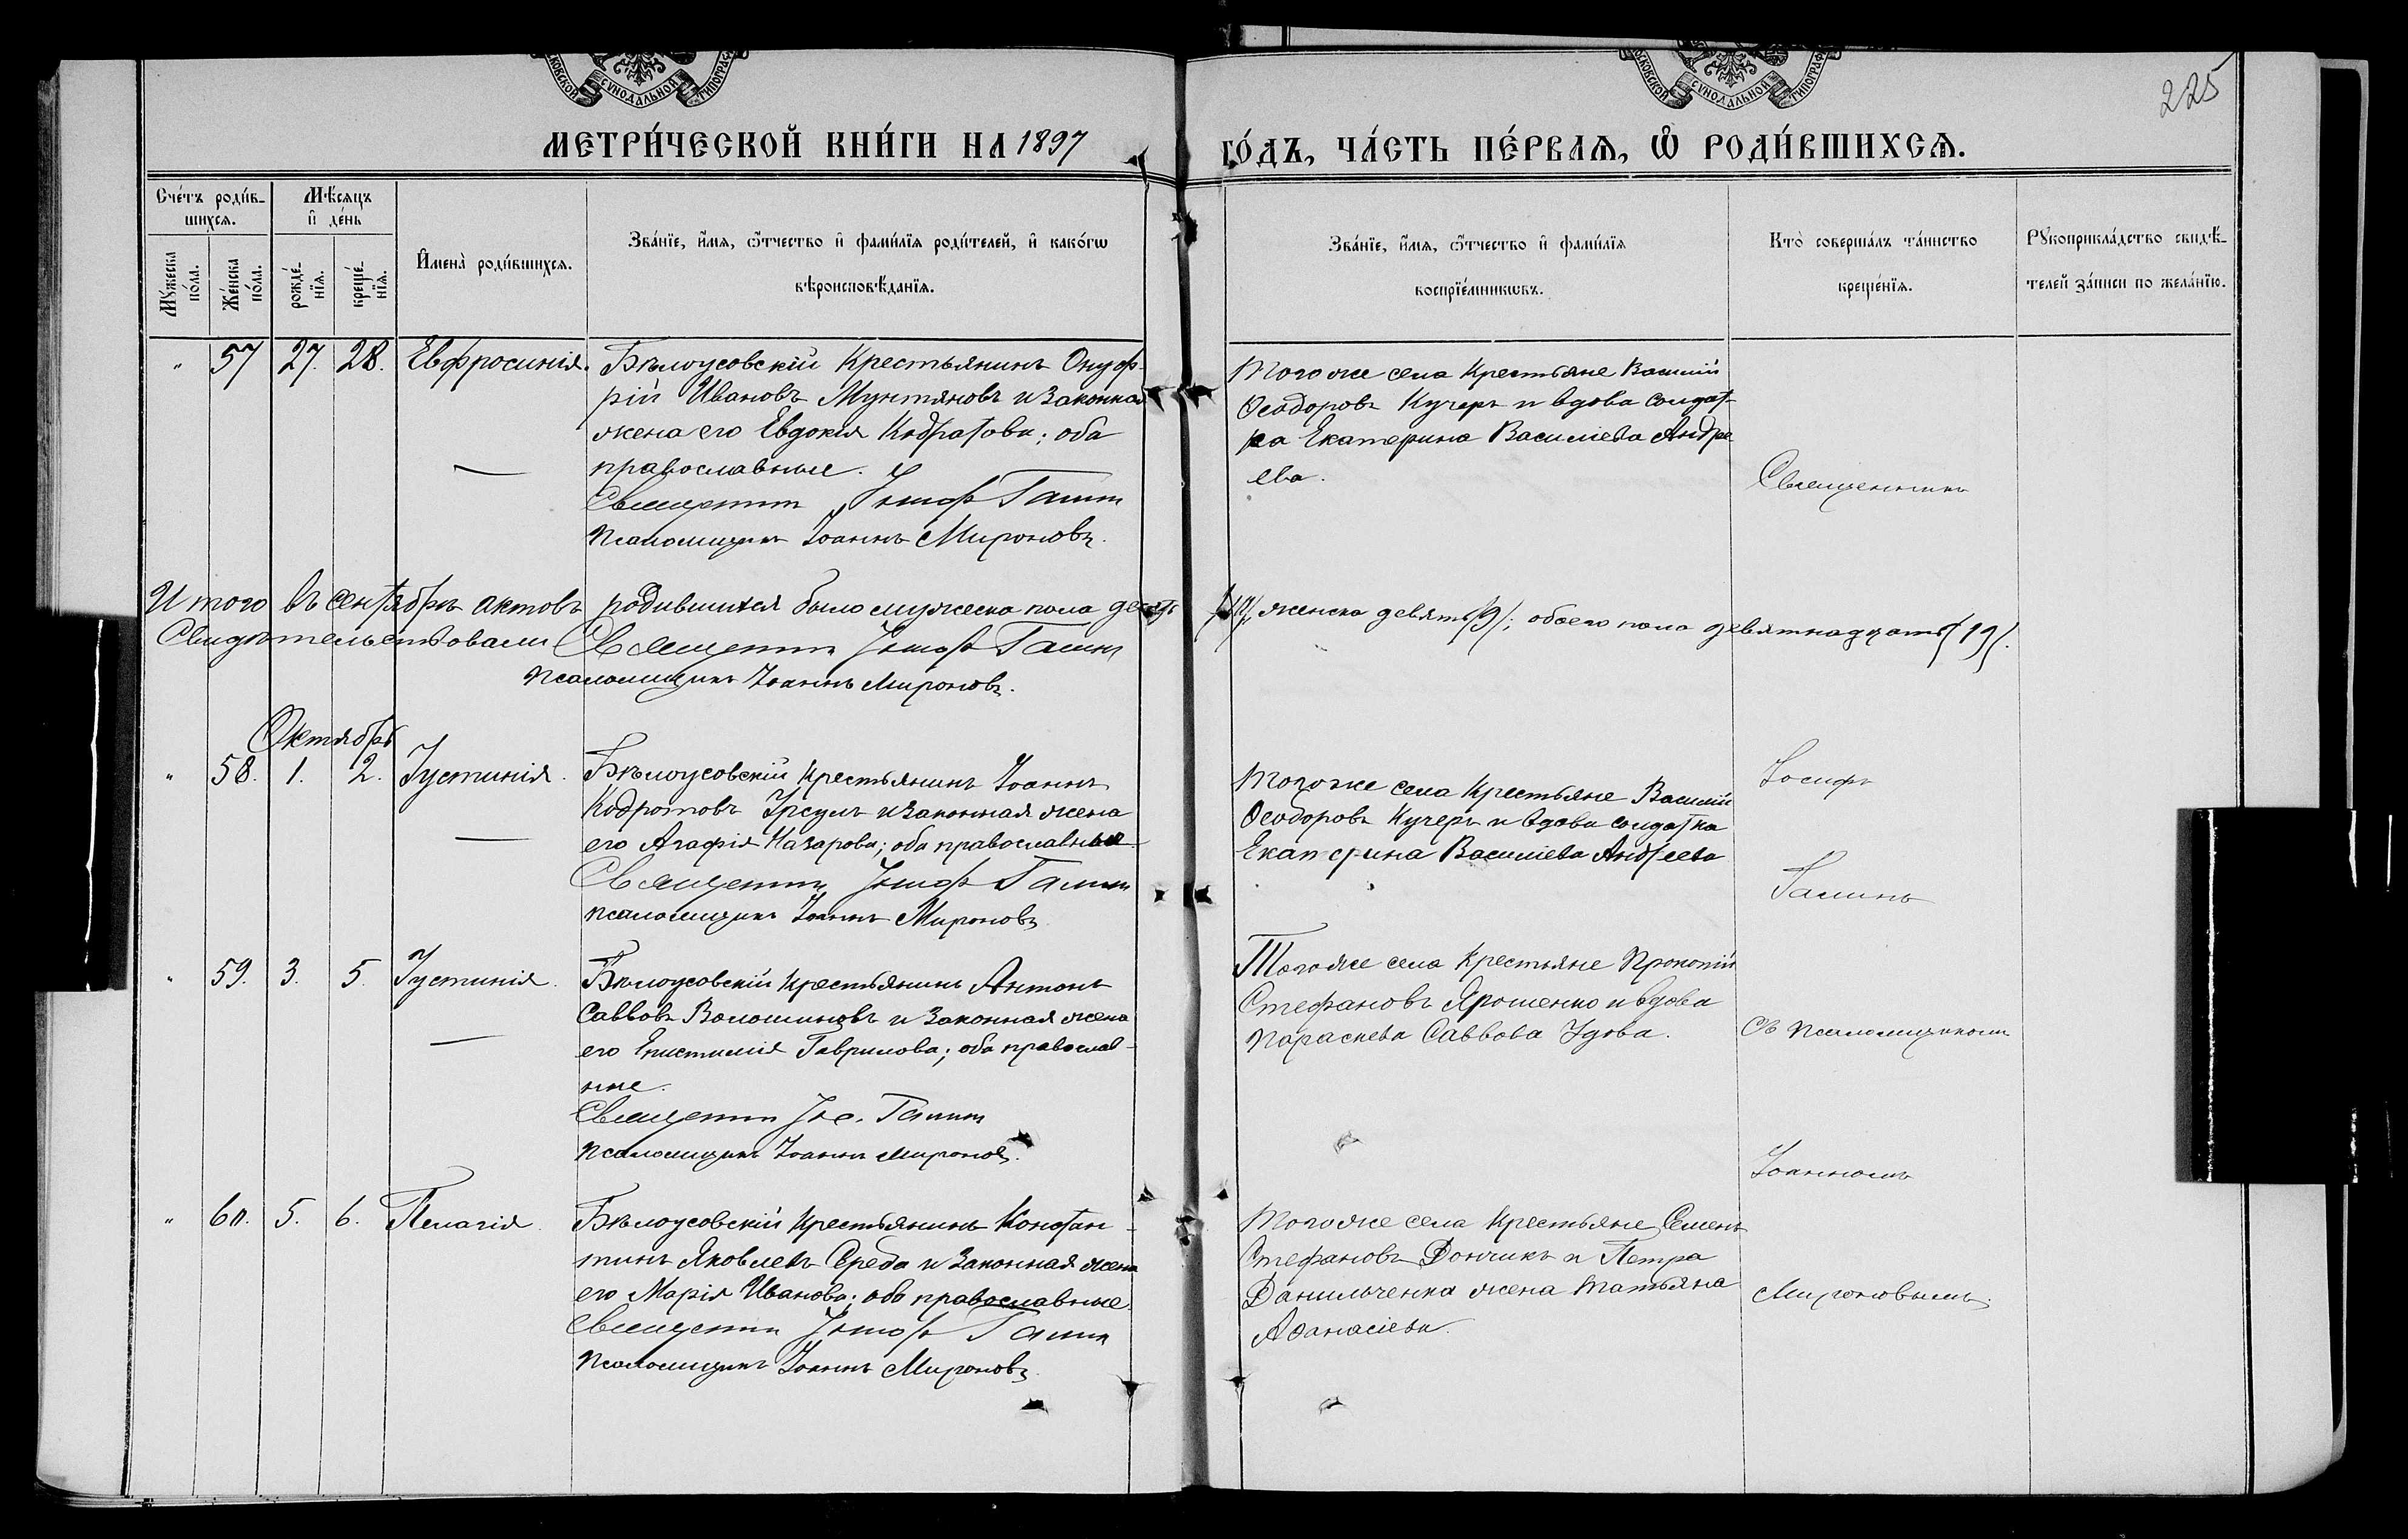 МОСКОВСКОЙ СѴНОДАЛЬНОЙ ТИПОГРАФ
МОСКОВСКОЙ СѴНОДАЛЬНОЙ ТИПОГРАФ
225
МЕТРИ́ЧЕСКОЙ КНИ́ГИ НА 1897
ГО́ДЪ, ЧА́СТЬ ПЕ́РВАѦ, Ѽ РОДИ́ВШИХСѦ.
Сче́тъ роди́в-
шихсѧ.
Мѣ́сѧцъ
и҆ де́нь
Мꙋ́жеска
по́ла.
Же́нска
по́ла.
рожде́-
нїѧ.
креще́-
нїѧ.
И҆мена̀ роди́вшихсѧ.
Зва́нїе, и҆́мѧ, ѻ҆́тчество и҆ фами́лїѧ роди́телей, и҆ како́гѡ
вѣроисповѣ́данїѧ.
Зва́нїе, и҆́мѧ, ѻ҆́тчество и҆ фами́лїѧ
воспрїе́мникѡвъ.
Кто̀ соверша́лъ та́инство
креще́нїѧ.
Рꙋкоприкла́дство свидѣ́-
телей за́писи по жела́нїю.
" 57 27. 28. Евфросинія.
Бѣлоусовскій Крестьянинъ Онуф-
рій Ивановъ Мунтяновъ и законная
жена его Евдокія Кодратова; оба
православные.
Священникъ Іосифъ Галинъ
Псаломщикъ Іоаннъ Мироновъ.
Того же села Крестьяне Василій
Ѳеодоровъ Кучеръ и вдова солдат-
ка Екатерина Василіева Андре
ева.
Священникъ
Итого въ сентябрѣ актовъ родившихся было мужеска пола десять /10/, женска девять /9/; обоего пола девятнадцать /19/.
Свидѣтельствовали Священникъ Іосифъ Галинъ
Псаломщикъ Іоаннъ Мироновъ.
Октябрь
" 58. 1. 2. Іустинія.
Бѣлоусовскій Крестьянинъ Іоаннъ
Кодротовъ Урсулъ и законная жена
его Агафія Назарова; оба православные
Священникъ Іосифъ Галинъ
псаломщикъ Іоаннъ Мироновъ
Того же села Крестьяне Василій
Ѳеодоровъ Кучеръ и вдова солдатка
Екатерина Василіева Андреева
Іосифъ
Галинъ
" 59. 3. 5. Іустинія.
Бѣлоусовскій Крестьянинъ Антонъ
Саввовъ Волошиновъ и законная жена
его Епистимія Гаврилова; оба православ-
ные.
Священникъ Іос. Галинъ
Псаломщикъ Іоаннъ Мироновъ.
Того же села Крестьяне Прокопій
Стефановъ Ярошенко и вдова
Параскева Саввова Удова.
съ Псаломщикомъ
Іоанномъ
" 60. 5. 6. Пелагія.
Бѣлоусовскій Крестьянинъ Констан-
тинъ Яковлевъ Середа и законная жена
его Марія Иванова; оба православные.
Священникъ Іосифъ Галинъ
Псаломщикъ Іоаннъ Мироновъ.
Того же села Крестьяне Семенъ
Стефановъ Дончикъ и Петра
Данильченка жена Татьяна
Аѳанасіева.
Мироновымъ.